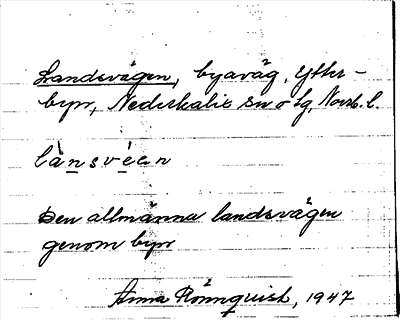 Landsvägen, byaväg, Ytter-
byn, Nederkalix sn o lg, Norrb. l.
là̠nsvè̠an
Den allmänna landsvägen
genom byn
Anna Rönnquist, 1947